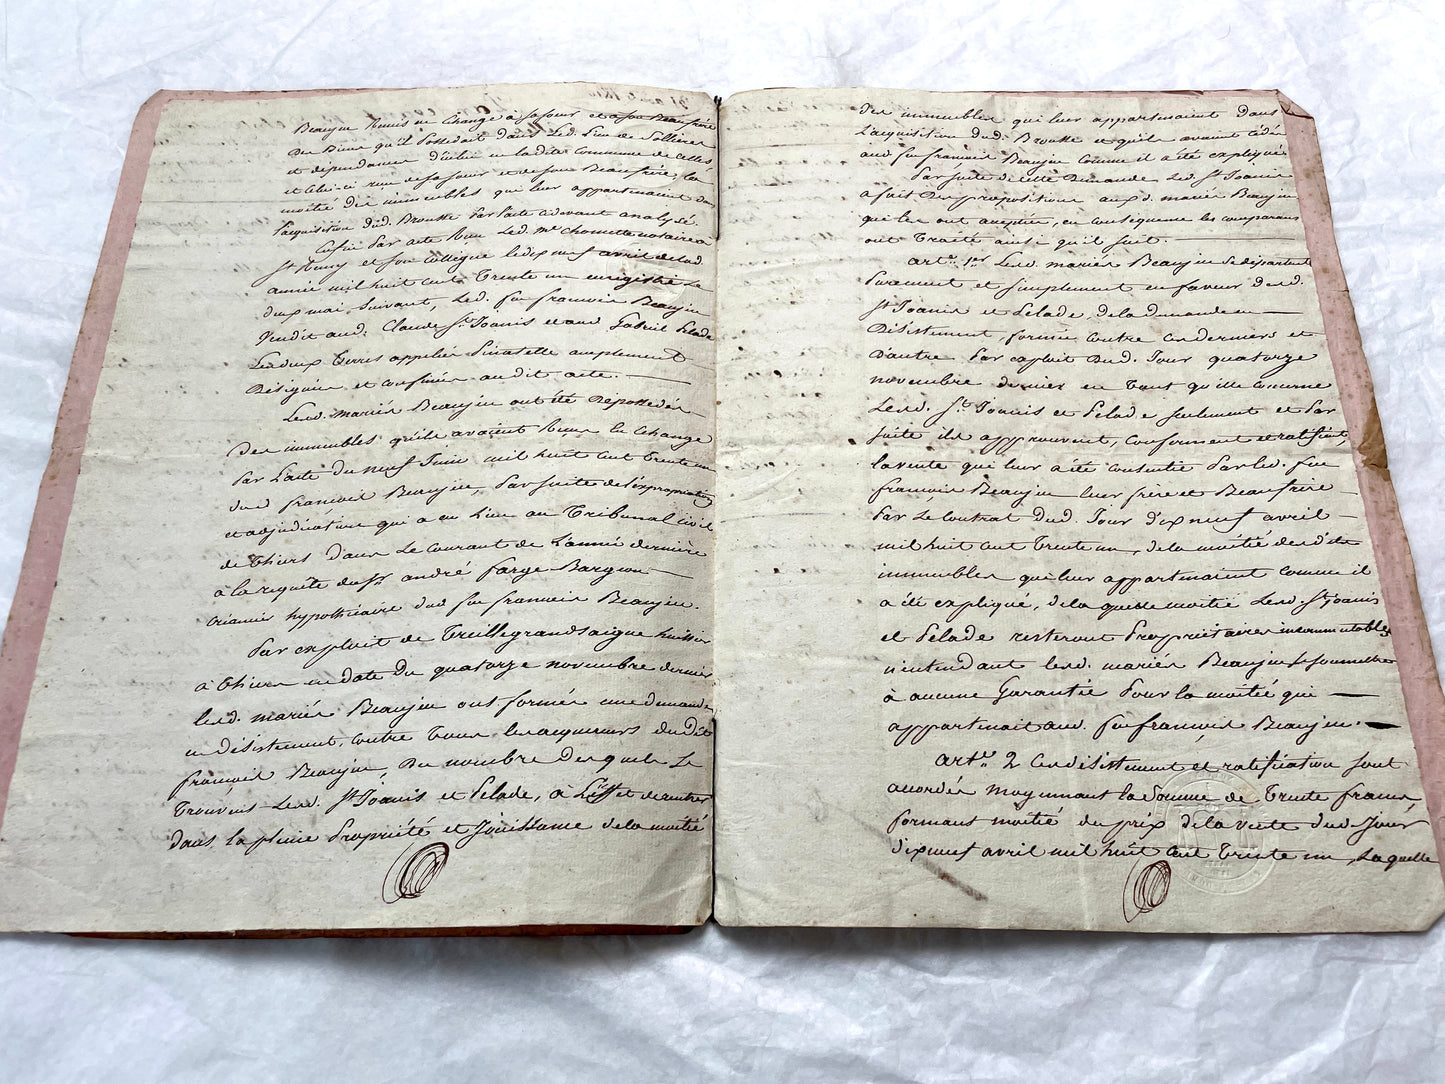 Beaujeu Remis en Change à sa soeur et à son Beau frère
Des Biens qu'il Possédait dans Led. Lieu de
et dépendances d'icelui en la dite Commune de Celles
et Celui-ci reçu de sa soeur et de son Beaufrère, la
moitié des immeubles qui leur appartenaient dans
l'acquisition dud. Broutte Par l'acte cidevant analysé.
Enfin Par acte Reçu Led. Me Chomette notaire à
St Remy et son Collègue Le dixneuf avril de lad.
année mil huit cent Trente un enregistré Le
deux mai, Suivant, Led. feu françois Beaujeu
Vendit aud. Claude St. Joanis et aud Gabriel Pelade
Les deux Terres appellées Pinatelle amplement
Désignées et confinées au dit acte. —
Lesd. mariés Beaujeu ont été Dépossédés
Des immeubles qu'ils avaient Reçus En Change
Par L'acte du neuf Juin mil huit cent Trente un
dud françois Beaujeu, Par suite de l'expropriation
et adjudication qui a eu Lieu au Tribunal civil
de Thiers dans Le courant de L'année dernière
à la requête du Sr andré farge Bargeon —
créancier hypothécaire dud feu françois Beaujeu.
Par exploit de Treille grandsaigne huissier
à Thiers en date du quatorze novembre dernier
lesd. mariés Beaujeu ont formés une demande
en désistement, contre Tous les acquéreurs du Dit
françois Beaujeu, Du nombre Desquels Se
Trouvent Lesd. St Joanis et Pelade, à L'effet de rentrer
dans la pleine Propriété et Jouissance de la moitié
Des immeubles qui leur appartenaient dans
L'acquisition dud. Broutte et qu'ils avaient Cédée
aud feu françois Beaujeu Comme il a été expliqué
Par suite de cette Demande Led. St Joanis
a fait Des propositions auxd. mariés Beaujeu
qu'ils ont acceptée, en Conséquence les comparans
ont Traité ainsi qu'il suit. —
art. 1er Lesd. mariés Beaujeu Se départent
Purement et simplement en faveur desd.
St Joanis et Pelade, de la demande en —
Désistement, formée contre ces derniers et
D'autre Par exploit Dud. Jour quatorze
novembre dernier en Tout qu'elle Concerne
Lesd. St. Joanis et Pelade seulement et Par
suite ils approuvent, confirment et ratifient,
la vente qui leur a été consentie Par led. feu
françois Beaujeu leur frère et Beaufrère —
Par Le Contrat Dud. Jour dixneuf avril —
mil huit cent Trente un, de la moitié desd.
immeubles qui leur appartenaient Comme il
a été expliqué, de la quelle moitié Lesd. St joanis
et Pelade resteront Propriétaires incommutables
n'entendant lesd. mariés Beaujeu Se soumettre
à aucune Garantie Pour la moitié qui —
appartenait aud. feu françois Beaujeu. —
art. 2 Ces désistement et ratification sont
accordés moyennant la Somme de Trente francs,
formant moitié du prix de la vente dud Jour
dixneuf avril mil huit cent Trente un, La quelle